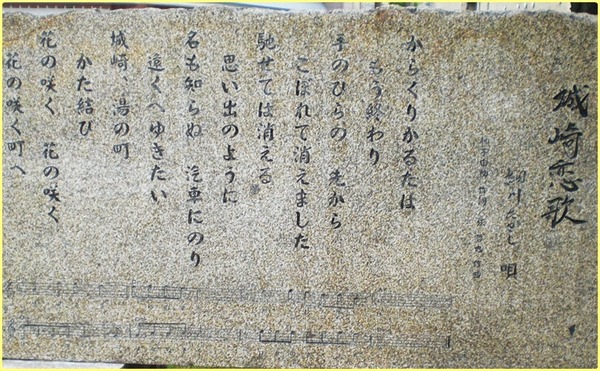 城崎恋歌
細川たかし 唄
からくりかるたは
もう終わり
手のひらの 先から
こぼれて消えました
馳せては消える
思い出のように
名も知らぬ 汽車にのり
遠くへゆきたい
城崎、湯の町
かた結び
花の咲く 花の咲く
花の咲く町へ